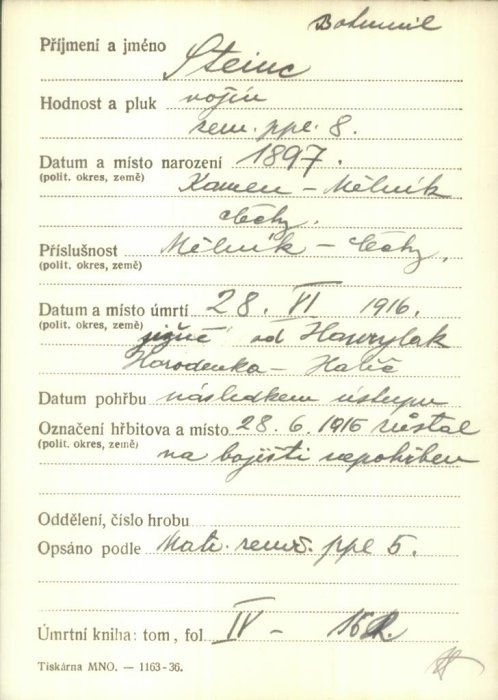 Bohumil
Příjmení a jméno Steinc
Hodnost a pluk vojín
zem. ppl. 8.
Datum a místo narození 1897.
(polit. okres, země) Kamen – Mělník
Čechy.
Příslušnost Mělník – Čechy,
(polit. okres, země)
Datum a místo úmrtí 28. VI 1916.
(polit. okres, země) jižně od Hawrylak
Horodenka – Halič
Datum pohřbu následkem ústupu
Označení hřbitova a místo 28. 6. 1916 zůstal
(polit. okres, země)
na bojišti nepohřben
Oddělení, číslo hrobu
Opsáno podle Matr. zemř. ppl 5.
Úmrtní kniha: tom, fol IV –
Tiskárna MNO. — 1163-36.